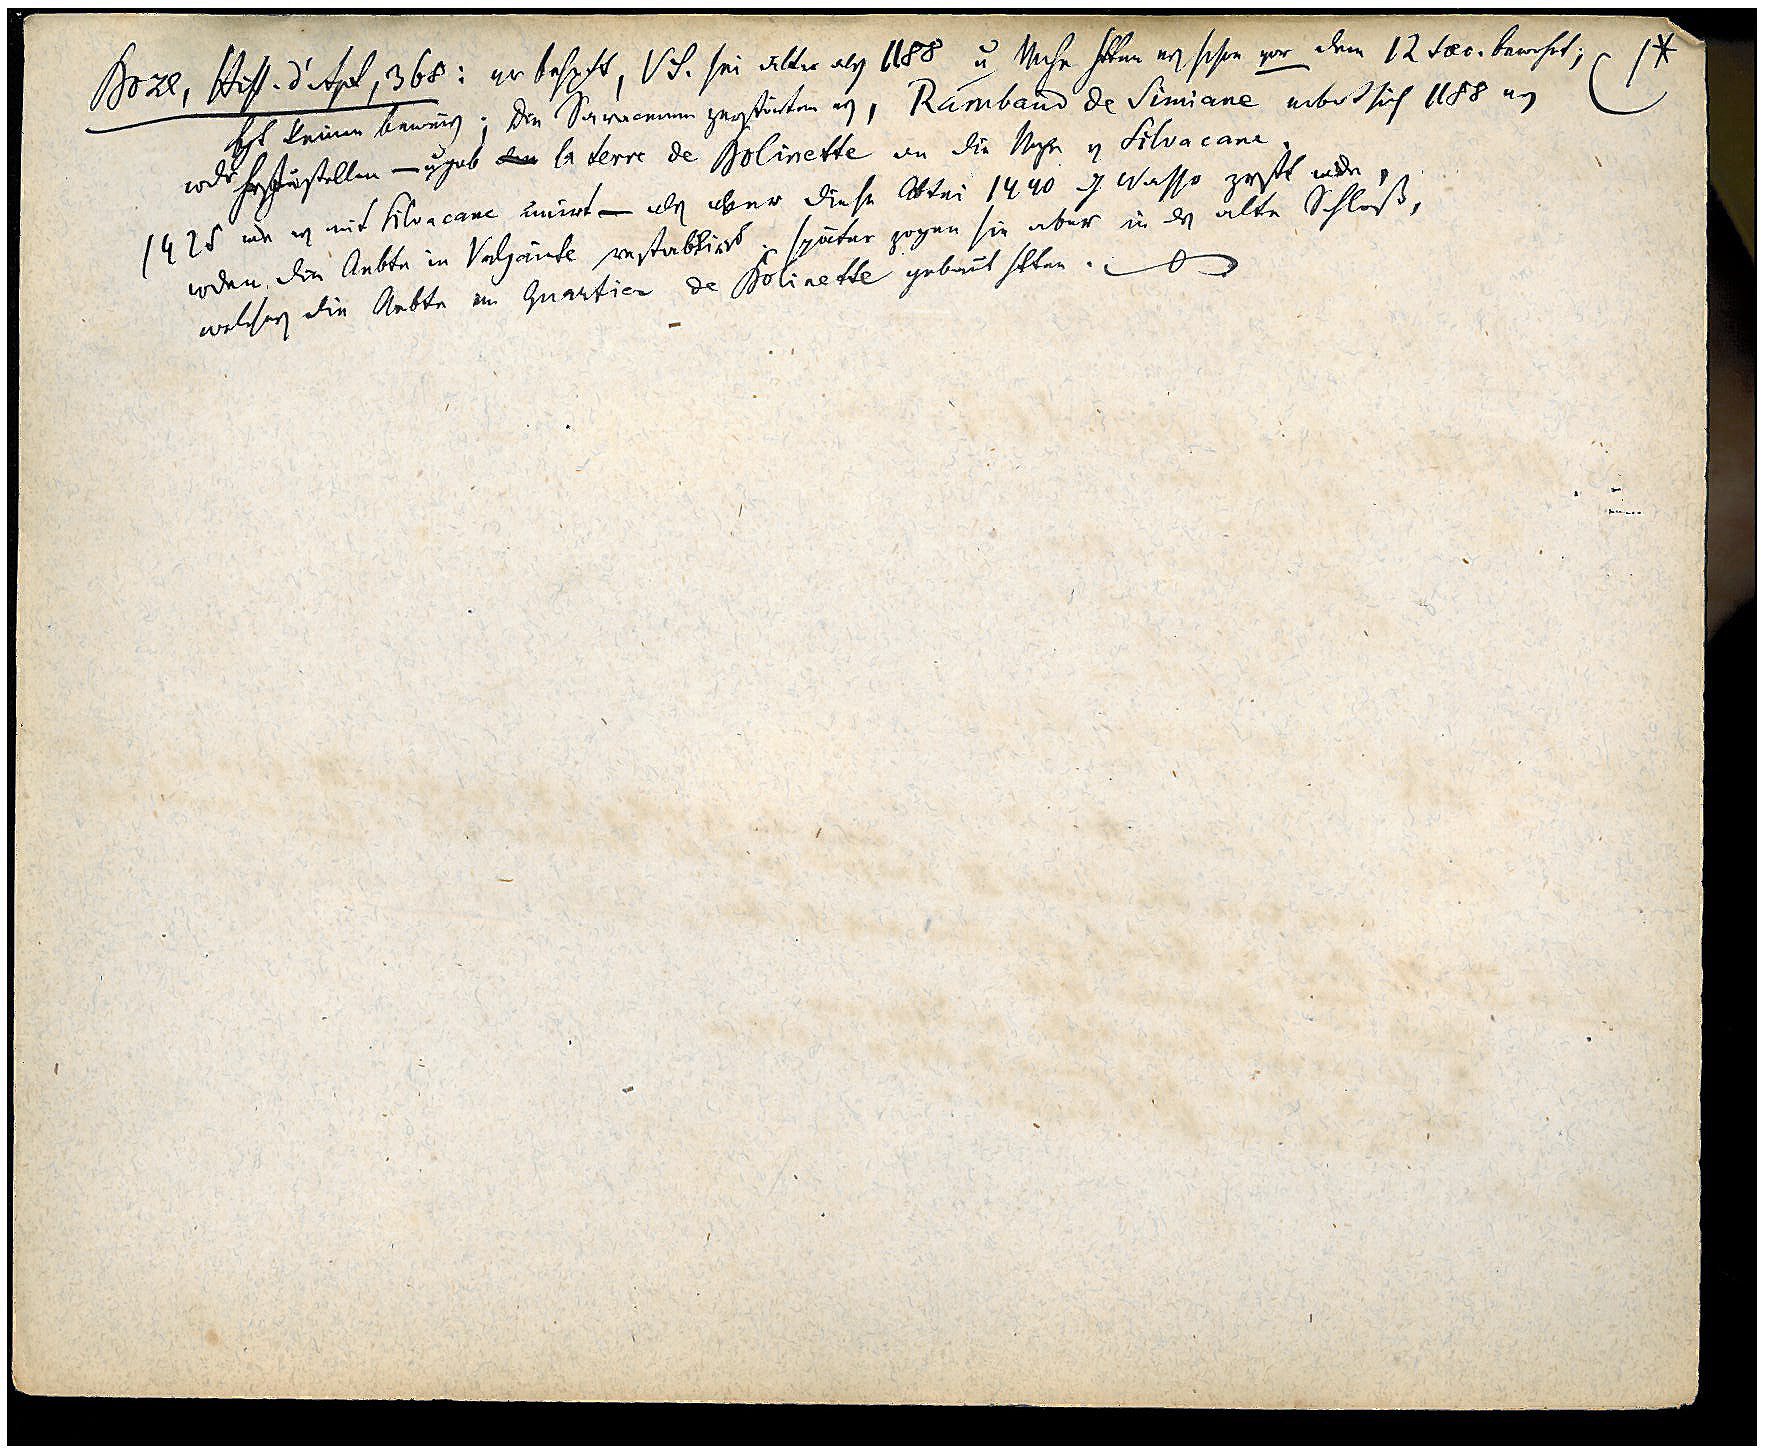 Boze, Hist. d'Apt, 368: er behpt, VS. sei älter als 1188 u Mche htten es schon vor dem 12 saec. bewohnt; 1*
hat keinen beweis; die Saracenen zerstörten es, Rambaud de Simiane erbot sich 1188 es
wdr herzustellen — u gab la terre de Bolinette an die Mche v Silvacane.
1425 wde es mit Silvacane unirt — als aber diese Abtei 1440 d Wasser zerstört
worden, die Aebte in Valsainte restablirt. später zogen sie aber in das alte Schloß,
welches die Aebte im Quartier de Bolinette gebaut htten.